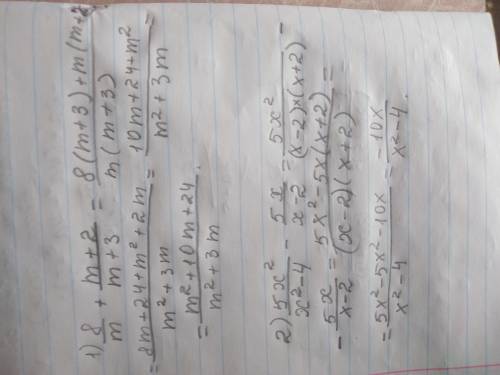 1) 8/m + (m+2)/(m+3) = (8(m+3)+m(m+2)/(m(m+3)) =
= (8m+24+m²+2m)/(m²+3m) = (10m+24+m²)/(m²+3m)
= (m²+10m+24)/(m²+3m).
2) 5x²/(x²-4) - 5x/(x-2) = 5x²/((x-2)×(x+2)) -
- 5x/(x-2) = (5x²-5x(x+2))/((x-2)(x+2)) =
= (5x²-5x²-10x)/(x²-4) = (-10x)/(x²-4).